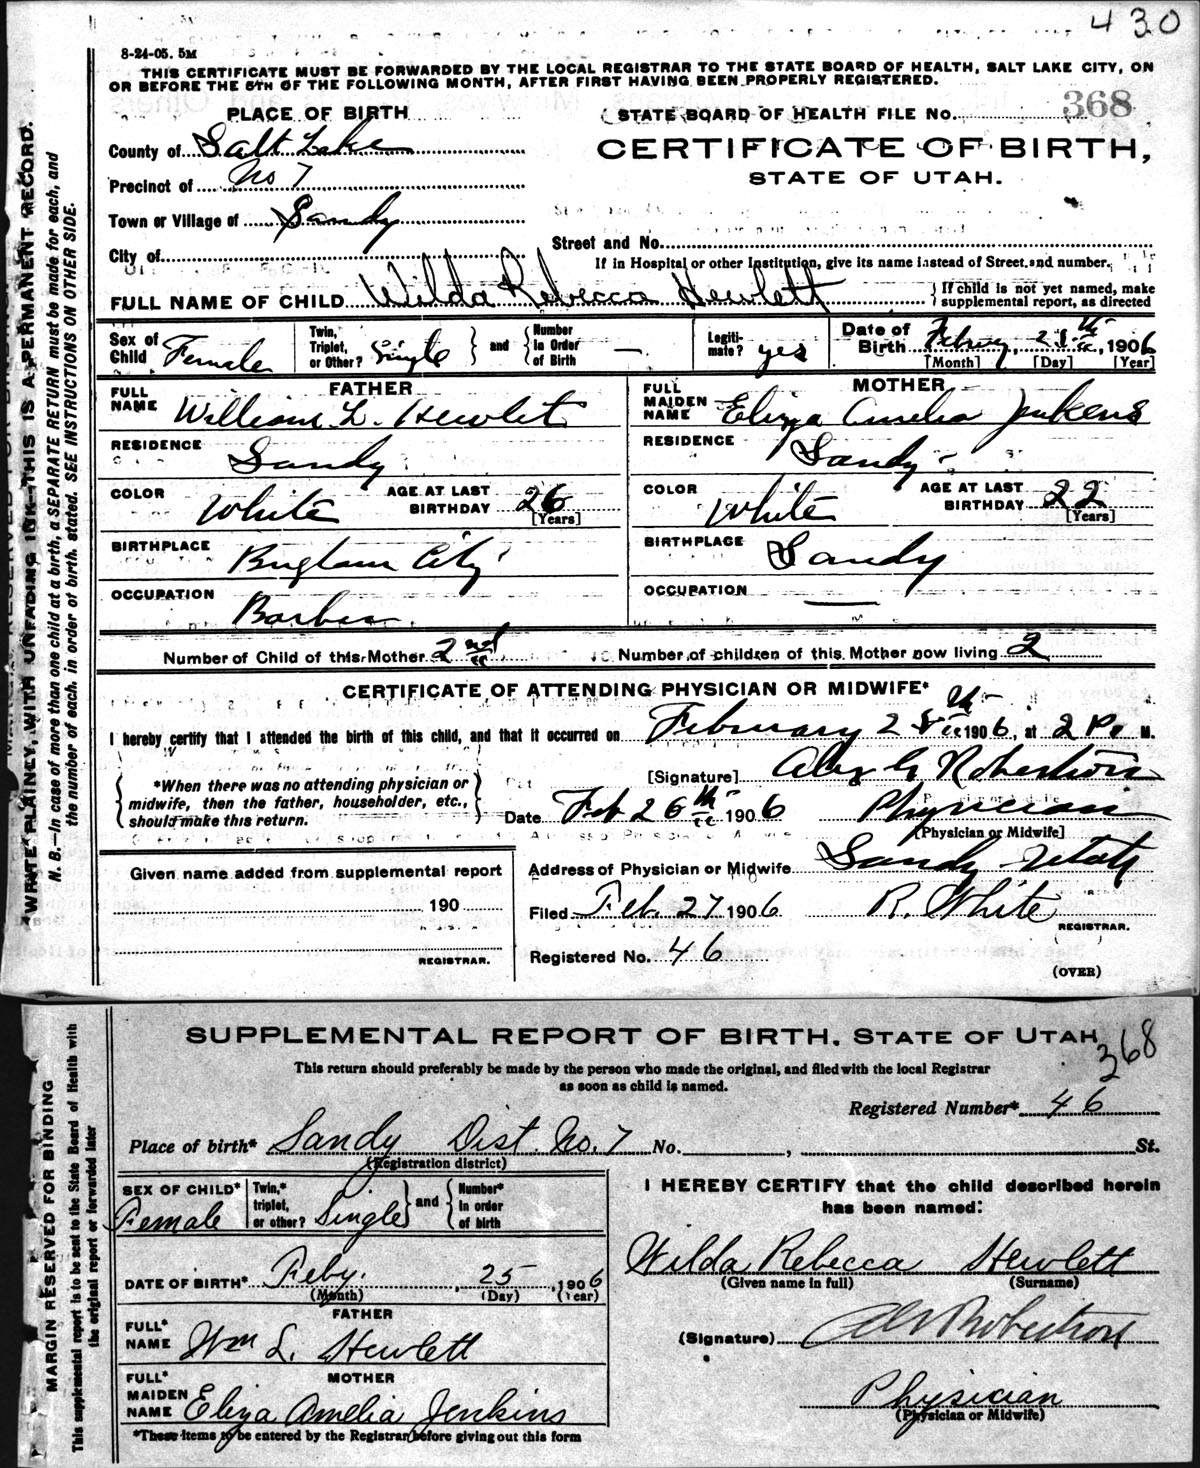 430
8-24-05. 5M
THIS CERTIFICATE MUST BE FORWARDED BY THE LOCAL REGISTRAR TO THE STATE BOARD OF HEALTH, SALT LAKE CITY, ON
OR BEFORE THE 5TH OF THE FOLLOWING MONTH, AFTER FIRST HAVING BEEN PROPERLY REGISTERED.
PLACE OF BIRTH
STATE BOARD OF HEALTH FILE No. 368
County of Salt Lake
CERTIFICATE OF BIRTH,
Precinct of No 7
STATE OF UTAH.
Town or Village of Sandy
Street and No.
City of
If in Hospital or other Institution, give its name instead of Street and number.
FULL NAME OF CHILD Wilda Rebecca Hewlett
If child is not yet named, make supplemental report, as directed
Sex of Child Female
Twin, Triplet, or Other? Single and Number in Order of Birth —
Legitimate? yes
Date of Birth 25th, 1906
[Month] [Day] [Year]
FATHER
FULL NAME William L. Hewlet
RESIDENCE Sandy
COLOR White AGE AT LAST BIRTHDAY 26 [Years]
BIRTHPLACE City
OCCUPATION Barber
MOTHER
FULL MAIDEN NAME Eliza Amelia Jenkens
RESIDENCE Sandy
COLOR White AGE AT LAST BIRTHDAY 22 [Years]
BIRTHPLACE Sandy
OCCUPATION —
Number of Child of this Mother 2nd Number of children of this Mother now living 2
CERTIFICATE OF ATTENDING PHYSICIAN OR MIDWIFE*
I hereby certify that I attended the birth of this child, and that it occurred on February 25th 1906, at 2 P. M.
*When there was no attending physician or
midwife, then the father, householder, etc.,
should make this return.
[Signature] Robertson
Date Feb 26th 1906 Physician
[Physician or Midwife]
Given name added from supplemental report
190
REGISTRAR.
Address of Physician or Midwife Sandy Utah
Filed Feb. 27 1906 R. White
REGISTRAR.
Registered No. 46
(OVER)
*WRITE PLAINLY, WITH UNFADING INK—THIS IS A PERMANENT RECORD.
N. B.—In case of more than one child at a birth, a SEPARATE RETURN must be made for each, and
the number of each, in order of birth, stated. SEE INSTRUCTIONS ON OTHER SIDE.
SUPPLEMENTAL REPORT OF BIRTH, STATE OF UTAH
368
This return should preferably be made by the person who made the original, and filed with the local Registrar
as soon as child is named.
Registered Number* 46
Place of birth* Sandy Dist. No. 7 No. , St.
(Registration district)
SEX OF CHILD* Female
Twin,* triplet, or other? Single and Number* in order of birth
DATE OF BIRTH* Feby. 25, 1906
(Month) (Day) (Year)
FATHER
FULL* NAME Wm L. Hewlett
MOTHER
FULL* MAIDEN NAME Eliza Amelia Jenkins
*These items to be entered by the Registrar before giving out this form
I HEREBY CERTIFY that the child described herein
has been named:
Wilda Rebecca Hewlett
(Given name in full) (Surname)
(Signature) Robertson
Physician
(Physician or Midwife)
MARGIN RESERVED FOR BINDING
This supplemental report is to be sent to the State Board of Health with
the original report or forwarded later